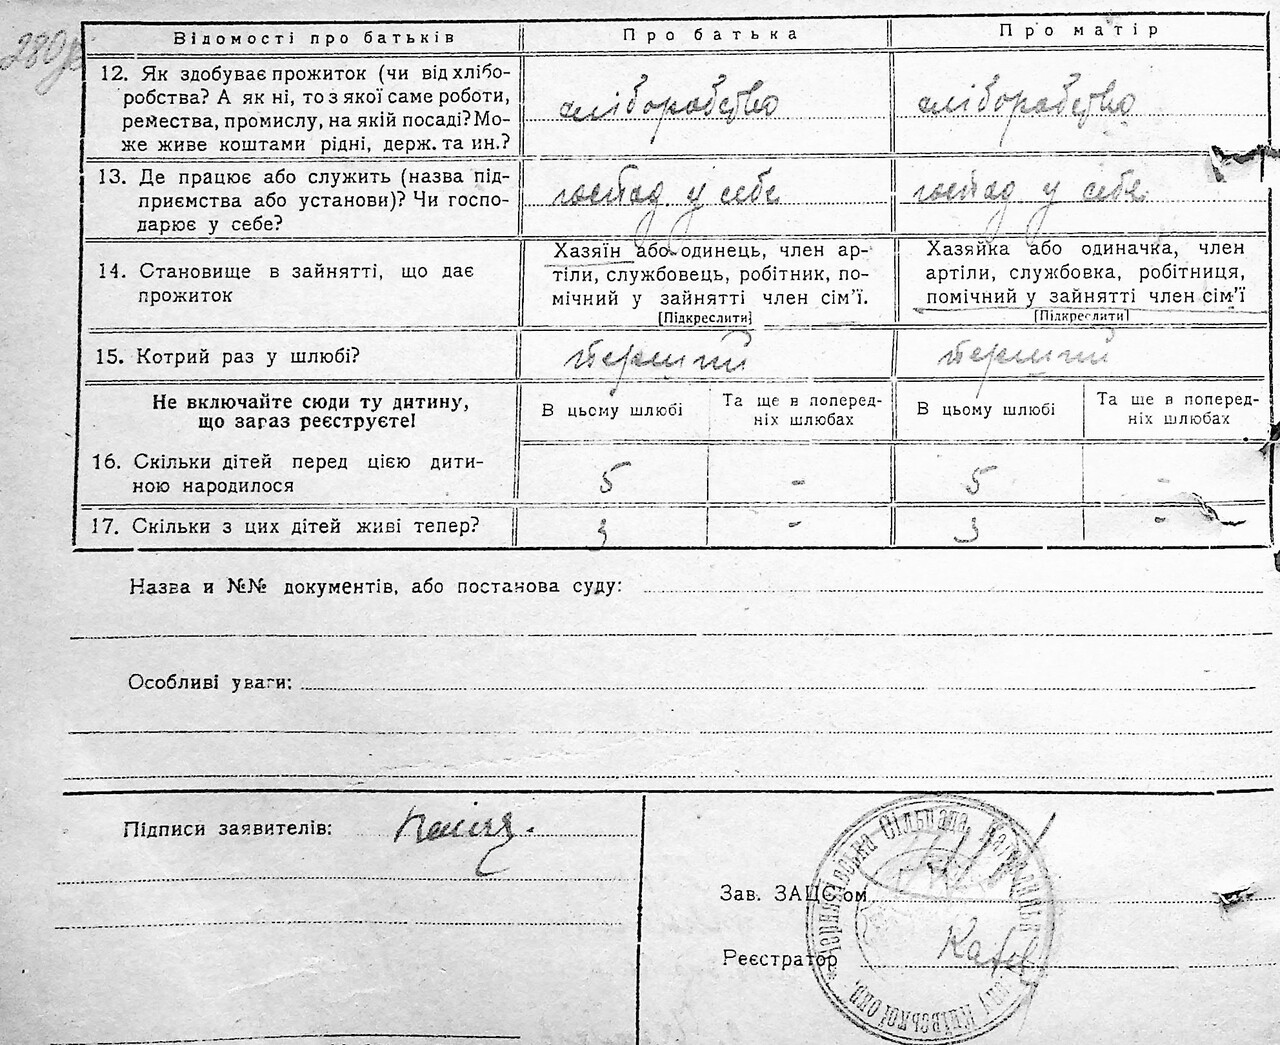 280зв
Відомості про батьків Про батька Про матір
12. Як здобуває прожиток (чи від хлібо-
робства? А як ні, то з якої саме роботи,
ремества, промислу, на якій посаді? Мо-
же живе коштами рідні, держ. та ин.?
хліборобство хліборобство
13. Де працює або служить (назва під-
приємства або установи)? Чи госпо-
дарює у себе?
господ. у себе господ у себе
14. Становище в зайнятті, що дає
прожиток
Хазяїн або одинець, член ар-
тіли, службовець, робітник, по-
мічний у зайнятті член сім'ї.
[Підкреслити]
Хазяйка або одиначка, член
артіли, службовка, робітниця,
помічний у зайнятті член сім'ї
[Підкреслити]
15. Котрий раз у шлюбі? перший перший
Не включайте сюди ту дитину,
що загаз реєструєте!
В цьому шлюбі
Та ще в поперед-
ніх шлюбах
В цьому шлюбі
Та ще в поперед-
ніх шлюбах
16. Скільки дітей перед цією дити-
ною народилося
5 - 5 -
17. Скільки з цих дітей живі тепер? 3 - 3 -
Назва и №№ документів, або постанова суду:
Особливі уваги:
Підписи заявителів:
Зав. ЗАЦС'ом
Реєстратор
Сільрада
Київської окр.